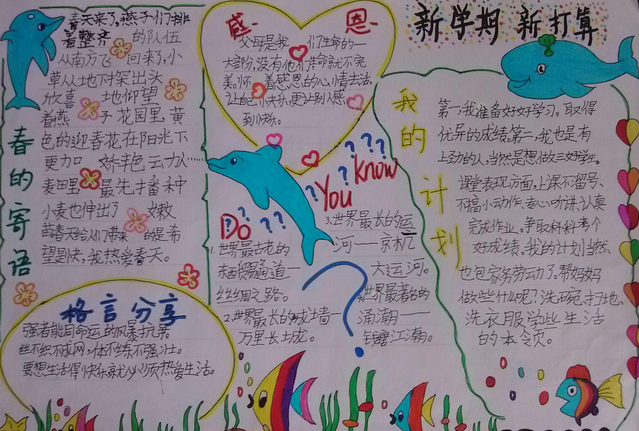 春的寄语
春天来了,燕子们排
着整齐的队伍
从南方飞回来了,小
草从地下探出头
放喜地仰望
着燕子花园里,黄
色的迎春花在阳光下
更加娇丰色云力人……
麦田里最先播种
小麦也伸出了嫩
蓝春天给人们带来的是希
望是快,我热爱春天。
格言分享
强者能同命运的风暴抗累
丝不织不成网,体不练不强壮。
要想生活得快乐就必须质热爱生活。
感恩
父母是我们生命的一
大部分,没有他们生命就不完
美。怀着感恩的心情去活,
让自己小快乐,更让别人感
到小快乐。
Do You Know
1.世界最古老的
贸易通道一
丝绸之路。
2.世界最长的城墙一
万里长城。
3.世界最长的运
河——京杭
大运河。
世界最著名的
涌潮——
钱塘江潮。
新学期 新打算
我的计划
第一,我准备好好学习。取得
优异的成绩。第二,我也是有
上劲的人,当然是想做三好学生。
课堂表现方面,上课不留号、
不搞小动作。专心听讲,认真
完成作业。争取科科考个
好成绩。我的计划当然
也包家务劳动了。帮妈妈
做些什么呢?洗碗,扫地、
洗衣服学些生活
的本领。